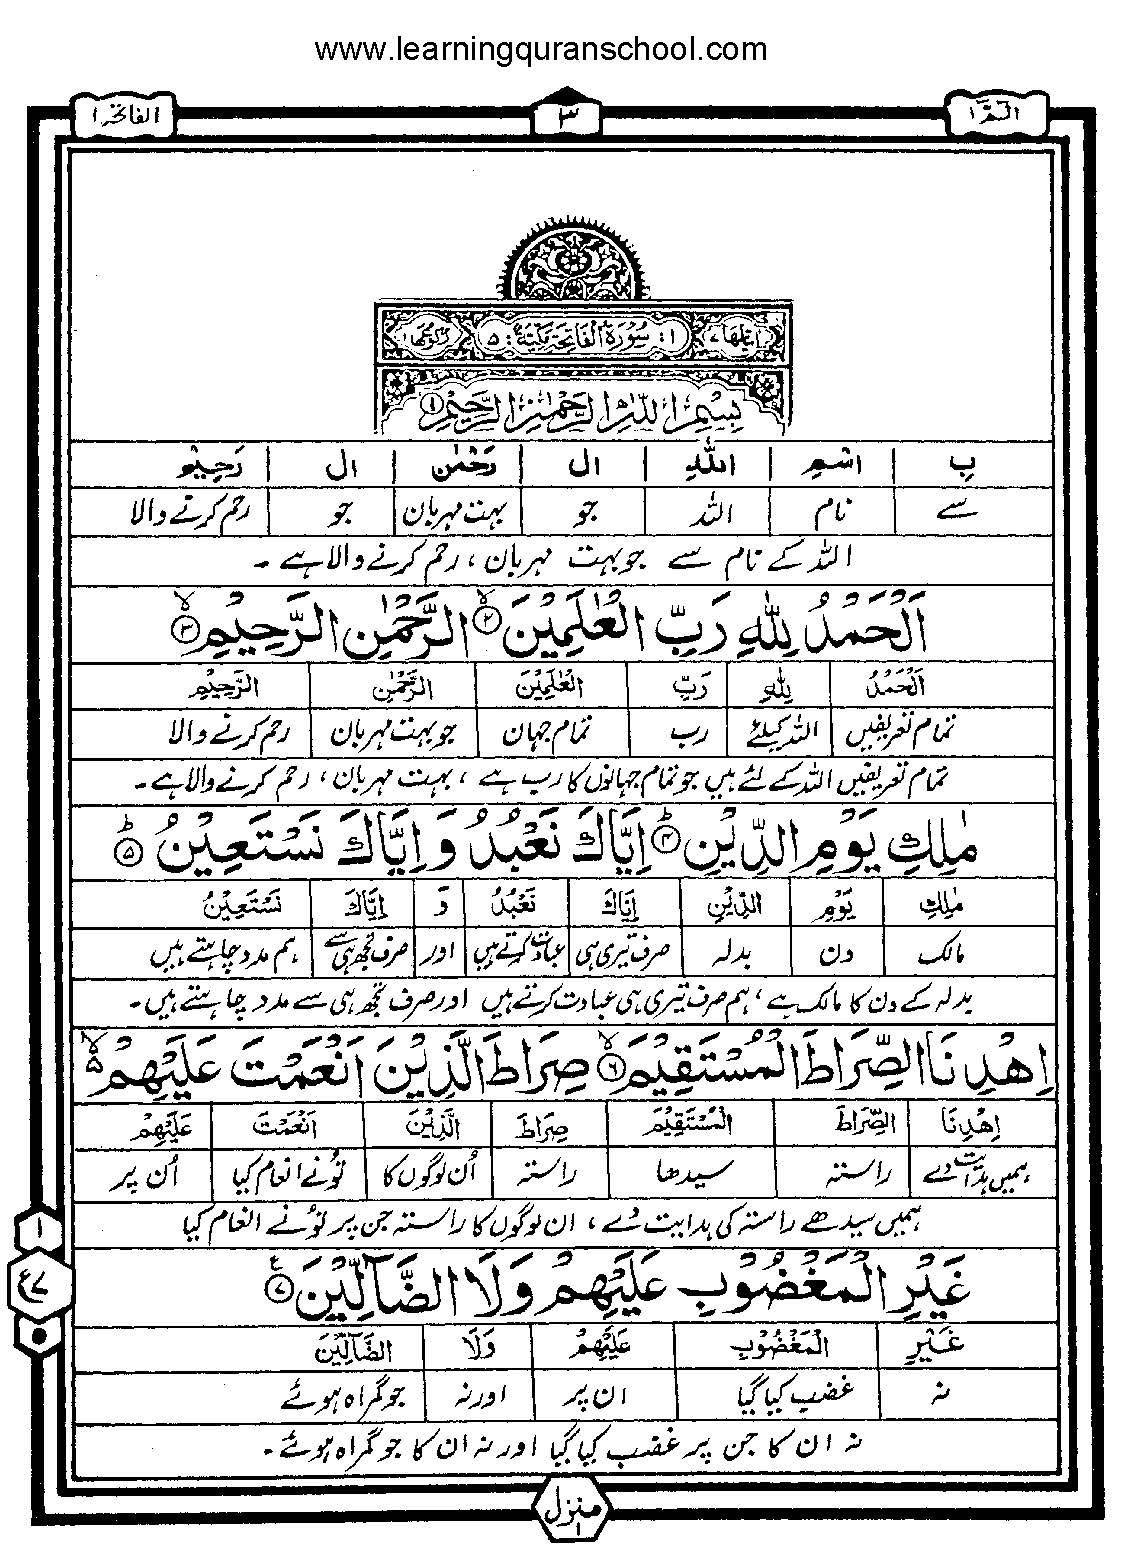 www.learningquranschool.com
الٓمّٓ ١ ٣ الفاتحة ١
اٰیٰتُهَا ٧ ١: سُوْرَةُ الْفَاتِحَةِ مَكِّيَّةٌ: ٥ رُكُوْعُهَا ١
بِسْمِ اللّٰهِ الرَّحْمٰنِ الرَّحِيْمِ ١
بِ اسْمِ اللّٰهِ ال رَحْمٰن ال رَحِيْمِ
سے نام اللہ جو بہت مہربان جو رحم کرنے والا
اللہ کے نام سے جو بہت مہربان ، رحم کرنے والا ہے ۔
اَلْحَمْدُ لِلّٰهِ رَبِّ الْعٰلَمِيْنَ ٢ۙ الرَّحْمٰنِ الرَّحِيْمِ ٣ۙ
اَلْحَمْدُ لِلّٰهِ رَبِّ الْعٰلَمِيْنَ الرَّحْمٰنِ الرَّحِيْمِ
تمام تعریفیں اللہ کیلئے رب تمام جہان جو بہت مہربان رحم کرنے والا
تمام تعریفیں اللہ کے لئے ہیں جو تمام جہانوں کا رب ہے ، بہت مہربان ، رحم کرنے والا ہے ۔
مٰلِكِ يَوْمِ الدِّيْنِ ٤ؕ اِيَّاكَ نَعْبُدُ وَ اِيَّاكَ نَسْتَعِيْنُ ٥ؕ
مٰلِكِ يَوْمِ الدِّيْنِ اِيَّاكَ نَعْبُدُ وَ اِيَّاكَ نَسْتَعِيْنُ
مالک دن بدلہ صرف تیری ہی عبادت کرتے ہیں اور صرف تجھ ہی سے ہم مدد چاہتے ہیں
بدلہ کے دن کا مالک ہے ، ہم صرف تیری ہی عبادت کرتے ہیں اور صرف تجھ ہی سے مدد چاہتے ہیں ۔
اِهْدِنَا الصِّرَاطَ الْمُسْتَقِيْمَ ٦ۙ صِرَاطَ الَّذِيْنَ اَنْعَمْتَ عَلَيْهِمْ ۙ۵
اِهْدِنَا الصِّرَاطَ الْمُسْتَقِيْمَ صِرَاطَ الَّذِيْنَ اَنْعَمْتَ عَلَيْهِمْ
ہمیں ہدایت دے راستہ سیدھا راستہ اُن لوگوں کا تُونے انعام کیا اُن پر
ہمیں سیدھے راستہ کی ہدایت دے ، ان لوگوں کا راستہ جن پر تُونے انعام کیا
١
غَيْرِ الْمَغْضُوْبِ عَلَيْهِمْ وَلَا الضَّآلِّيْنَ ٧ع
ع٧
غَيْرِ الْمَغْضُوْبِ عَلَيْهِمْ وَلَا الضَّآلِّيْنَ
نہ غضب کیا گیا ان پر اور نہ جو گمراہ ہوئے
نہ ان کا جن پر غضب کیا گیا اور نہ ان کا جو گمراہ ہوئے ۔
منزل ١